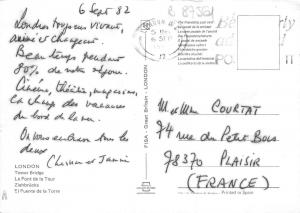 6 Sept 82
Londres toujours vivant,
animé et changeant.
Beau temps pendant
80% de notre séjour.
Cinéma, théâtre, magasins,
ça change des vacances
du bord de la mer.
On vous embrasse tous les
deux
LONDON
Tower Bridge
Le Pont de la Tour
El Puente de la Torre
PISA - Great Britain - LONDON
M et Mme COURTAT
74 rue du Petit Bois
78370 PLAISIR
(FRANCE)
Printed in Spain